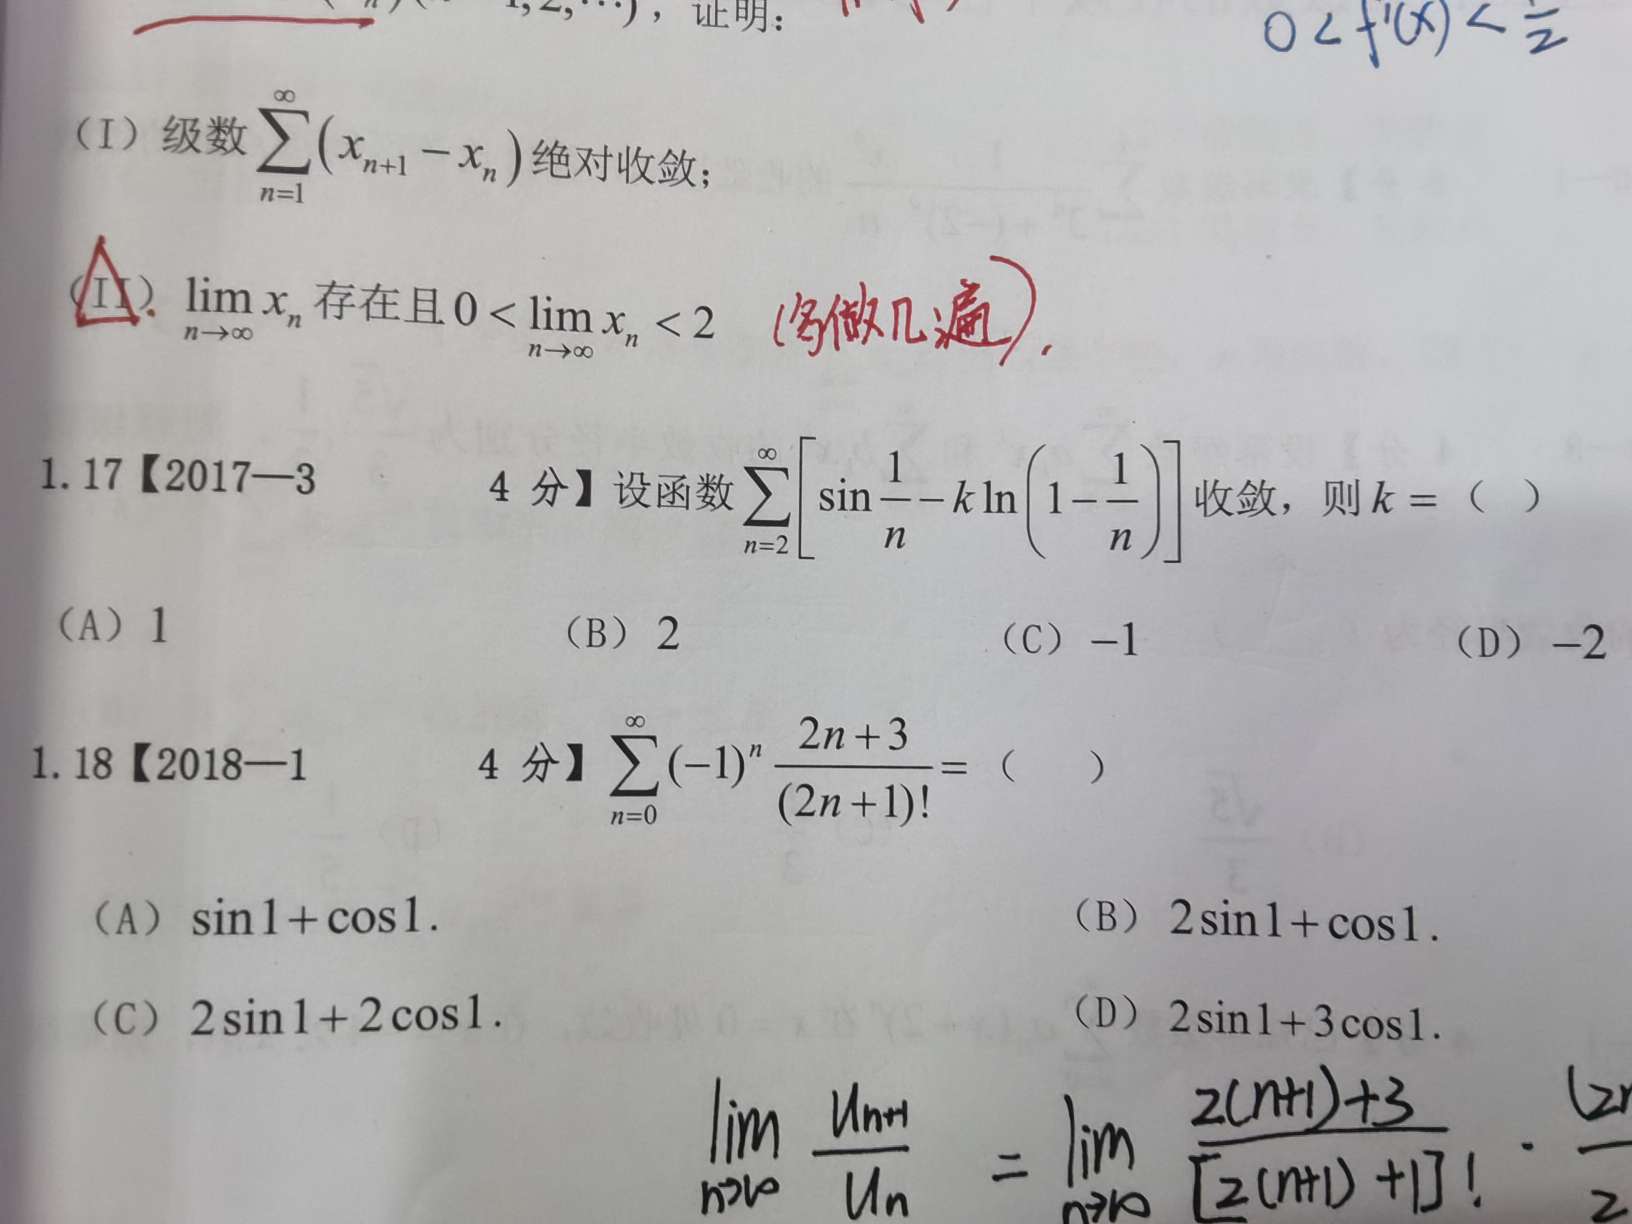 1,2,⋯), 证明:
0 < f'(x) < 1/2
(I) 级数 ∑_{n=1}^{∞} (x_{n+1} − x_n) 绝对收敛;
(II). lim_{n→∞} x_n 存在且 0 < lim_{n→∞} x_n < 2 (多做几遍).
1.17【2017—3 4 分】设函数 ∑_{n=2}^{∞} [sin 1/n − k ln(1 − 1/n)] 收敛, 则 k = ( )
(A) 1 (B) 2 (C) −1 (D) −2
1.18【2018—1 4 分】∑_{n=0}^{∞} (−1)^n (2n+3)/(2n+1)! = ( )
(A) sin1+cos1. (B) 2sin1+cos1.
(C) 2sin1+2cos1. (D) 2sin1+3cos1.
lim_{n→∞} U_{n+1}/U_n = lim_{n→∞} (2(n+1)+3)/[2(n+1)+1]! ·